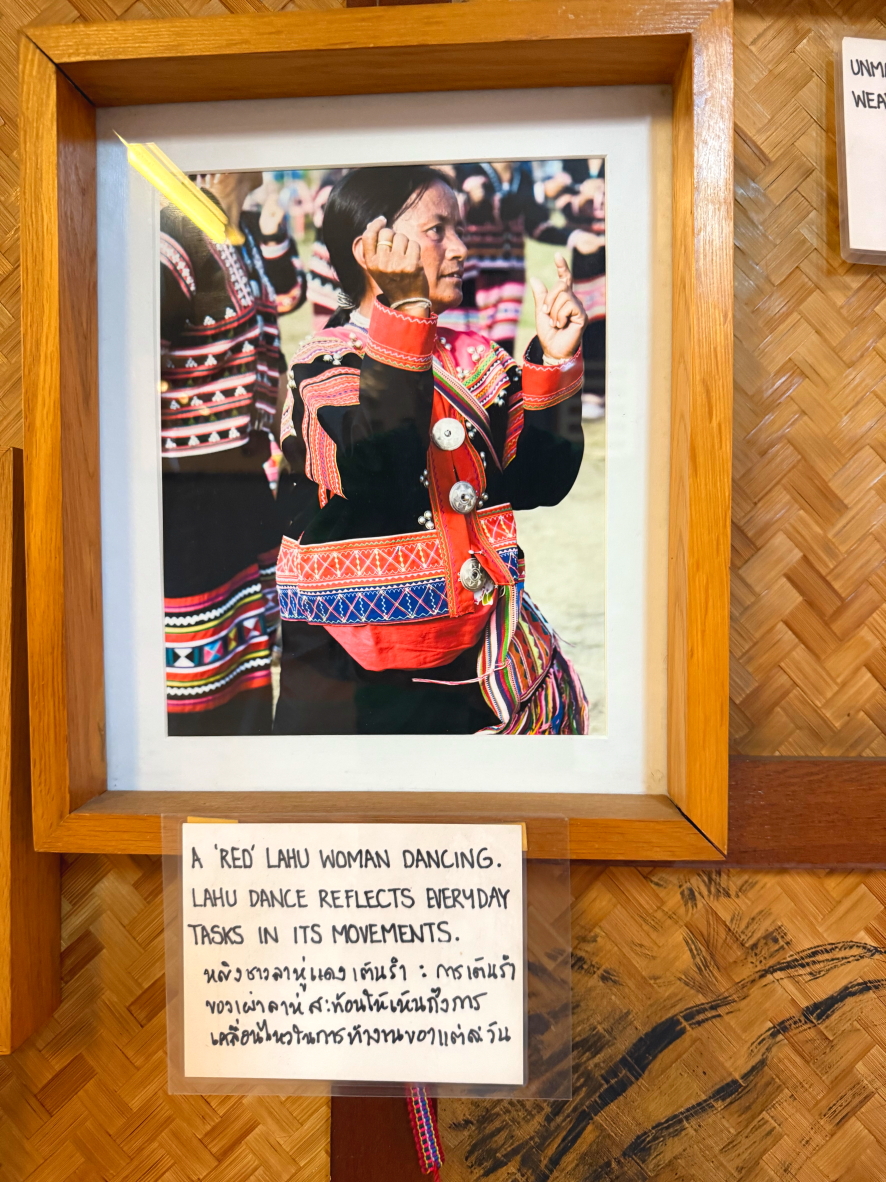 A 'RED' LAHU WOMAN DANCING.
LAHU DANCE REFLECTS EVERYDAY
TASKS IN ITS MOVEMENTS.
หญิงชาวลาหู่แดงเต้นรำ : การเต้นรำ
ของเผ่าลาหู่สะท้อนให้เห็นถึงการ
เคลื่อนไหวในการทำงานของแต่ละวัน